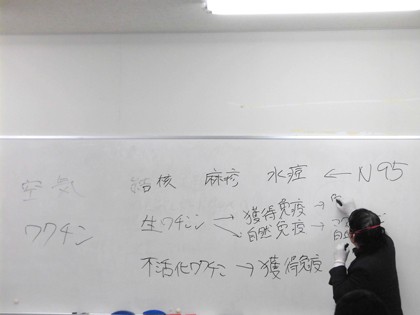 空気 結核 麻疹 水痘 ← N95
ワクチン 生ワクチン → 獲得免疫 →
→ 自然免疫
不活化ワクチン → 獲得免疫